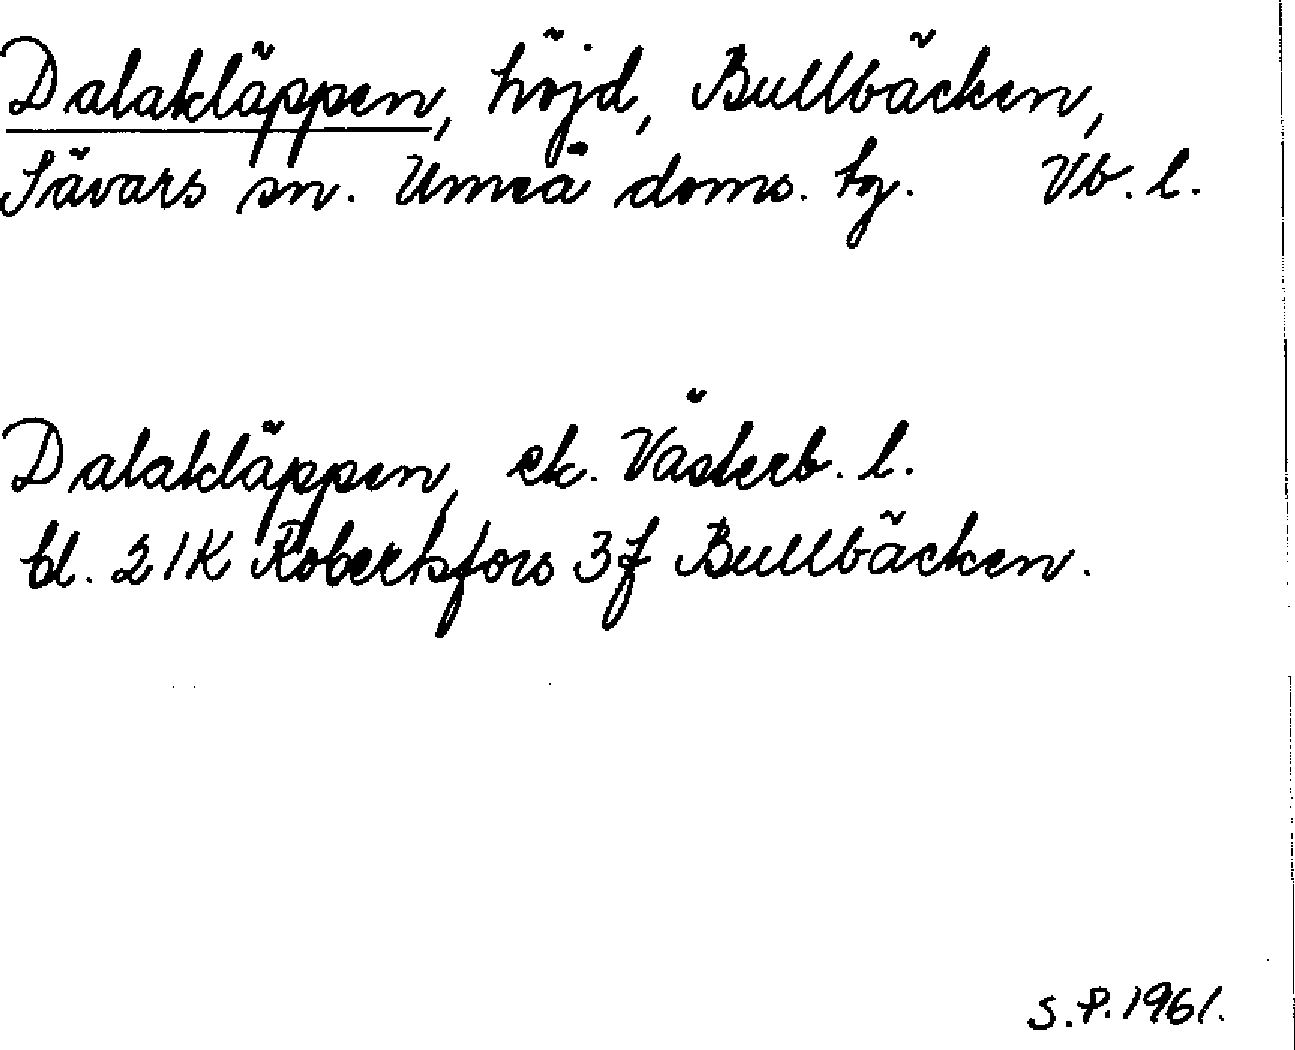 Dalakläppen, höjd, Bullbäcken,
Sävars sn. Umeå doms. tg. Vb. l.
Dalakläppen, ek. Västerb. l.
bl. 21K Robertsfors 3f Bullbäcken.
S.P. 1961.